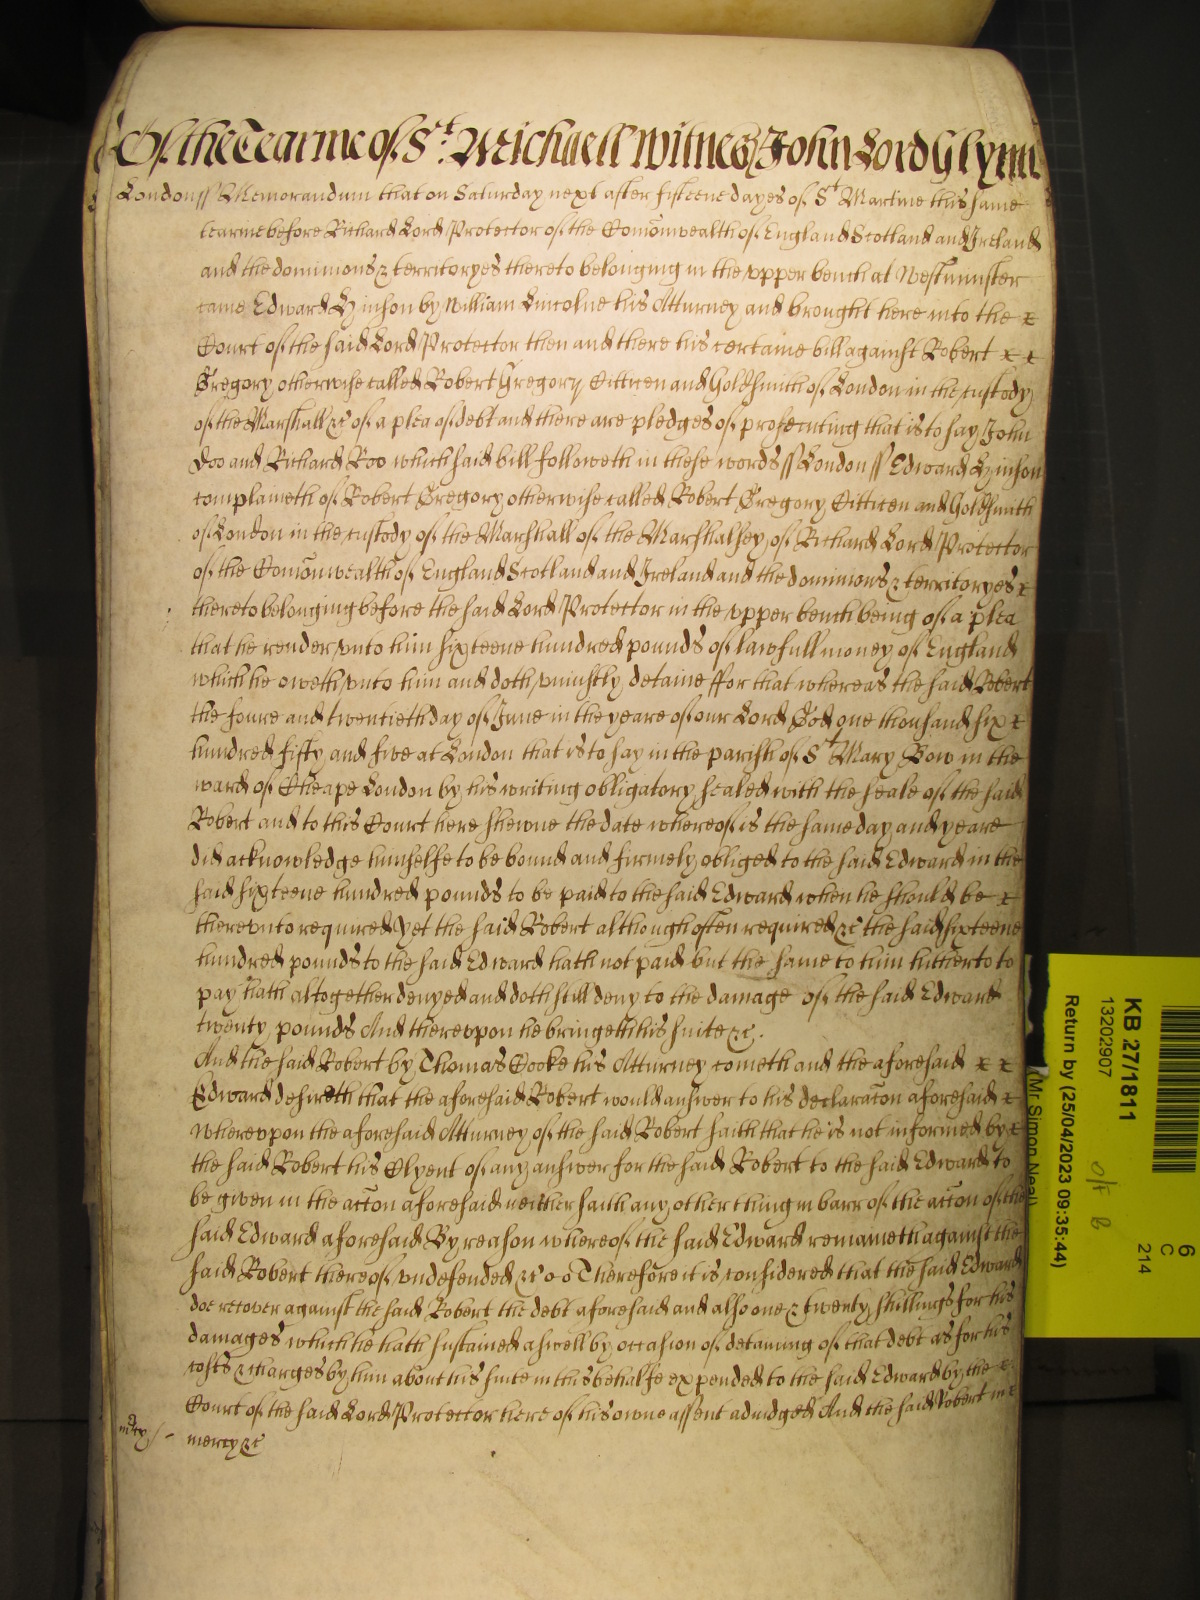 Of the Tearme of St. Michaell Witnes John Lord Glynn
London ss Memorandum that on Saturday next after fifteene dayes of St Martine this same
tearme before Richard Lord Protector of the Comonwealth of England Scotland and Ireland
and the dominions & territoryes thereto belonging in the vpper bench at Westminster
came Edward by William Lincolne his Atturney and brought here into the x
Court of the said Lord Protector then and there his certaine bill against Robert x x
Gregory otherwise called Robert Gregory Cittizen and Goldsmith of London in the custody
of the Marshall &c of a plea of debt and there are pledges of prosecuting that is to say John
Doo and Richard Roo which said bill followeth in these words ss London ss Edward
complaineth of Robert Gregory otherwise called Robert Gregory Cittizen and Goldsmith
of London in the custody of the Marshall of the Marshalsey of Richard Lord Protector
of the Comonwealth of England Scotland and Ireland and the dominions & territoryes x
thereto belonging before the said Lord Protector in the vpper bench being of a plea
that he render vnto him sixteene hundred pounds of lawfull money of England
which he oweth vnto him and doth vniustly detaine ffor that whereas the said Robert
the foure and twentieth day of June in the yeare of our Lord God one thousand six x
hundred fifty and five at London that is to say in the parish of St Mary Bow in the
ward of Cheape London by his writing obligatory sealed with the seale of the said
Robert and to this Court here shewne the date whereof is the same day and yeare
did acknowledge himselfe to be bound and firmely obliged to the said Edward in the
said sixteene hundred pounds to be paid to the said Edward when he should be x
therevnto required Yet the said Robert although often required &c the said sixteene
hundred pounds to the said Edward hath not paid but the same to him hitherto to
pay hath altogether denyed and doth still deny to the damage of the said Edward
twenty pounds And therevpon he bringeth his suite &c.
And the said Robert by Thomas Cooke his Atturney cometh and the aforesaid x x
Edward desireth that the aforesaid Robert would answer to his declaracon aforesaid x
Wherevpon the aforesaid Atturney of the said Robert saith that he is not informed by x
the said Robert his Clyent of any answer for the said Robert to the said Edward to
be given in the accon aforesaid neither saith any other thing in barr of the accon of the
said Edward aforesaid By reason whereof the said Edward remaineth against the
said Robert thereof vndefended &c o o Therefore it is considered that the said Edward
doe recover against the said Robert the debt aforesaid and also one & twenty shillings for his
damages which he hath sustained aswell by occasion of detaining of that debt as for his
costs & charges by him about his suite in this behalfe expended to the said Edward by the x
Court of the said Lord Protector here of his owne assent adiudged And the said Robert in
mercy &c
KB 27/1811
13202907
Return by (25/04/2023 09:35:44)
(Mr Simon Neal)
6
C
214